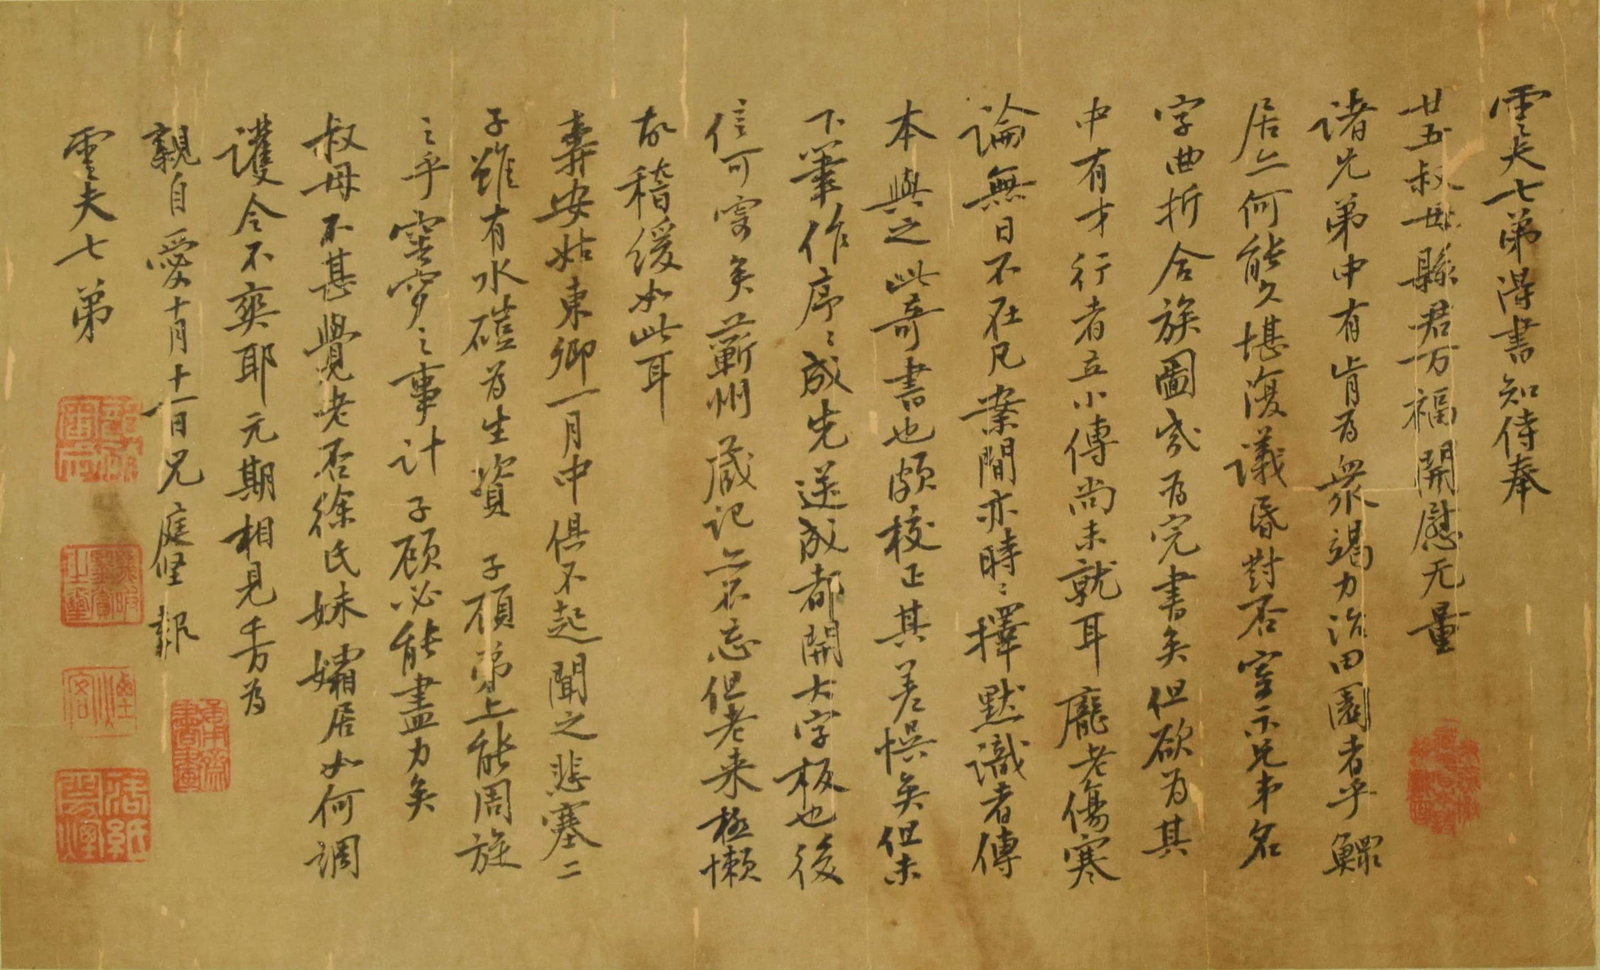 雲夫七弟得書知侍奉
廿五叔母縣君万福開慰无量
諸兄弟中有肯為衆竭力治田園者乎鰥
居亦何能久堪復議昏對否寄示兄弟名
字曲折合族圖
為完書矣但欲為其
中有才行者立小傳尚未就耳龐老傷寒
論無日不在几案間亦時時擇默識者傳
本與之此奇書也頗校正其差悞矣但未
下筆作序序成先送成都開大字板也後
信可寄矣蘄州藏記亦不忘但老來極懶
故稽緩如此耳
壽安姑東卿一月中俱不起聞之悲塞二
子雖有水磑為生資 子顧弟上能周旋
之乎窀穸之事計子顧必能盡力矣
叔母不甚覺老否徐氏妹孀居如何調
護令不爽耶元期相見千萬為
親自愛十月十一日兄庭堅報
雲夫七弟